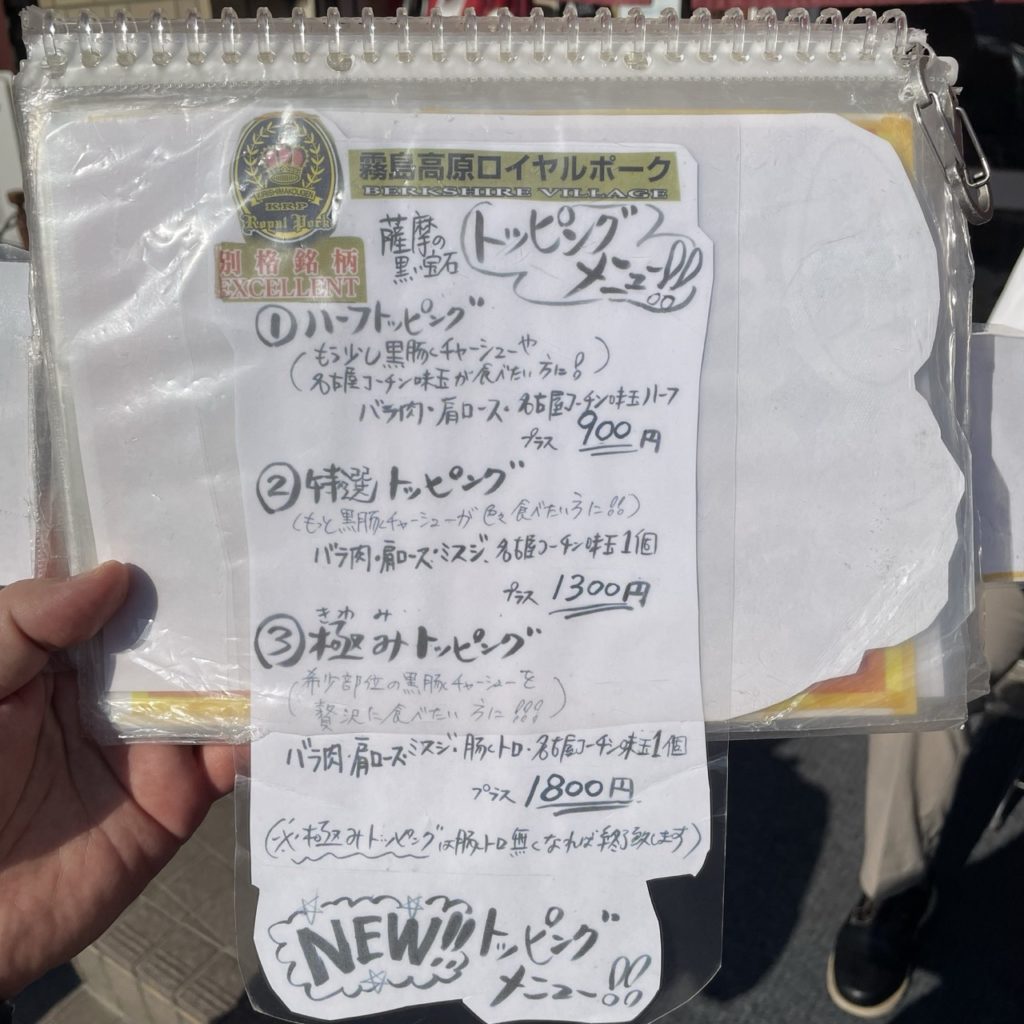 霧島高原ロイヤルポーク
BERKSHIRE VILLAGE
KRP
Royal Pork
別格銘柄
EXCELLENT
薩摩の
黒い宝石
トッピング
メニュー!!
① ハーフトッピング
(もう少し黒豚チャーシューや
名古屋コーチン味玉が食べたい方に!)
バラ肉・肩ロース・名古屋コーチン味玉ハーフ
プラス 900円
② 特選トッピング
(もっと黒豚チャーシューが色々食べたい方に!!)
バラ肉・肩ロース・ミスジ、名古屋コーチン味玉1個
プラス 1300円
きわみ
③ 極みトッピング
(希少部位の黒豚チャーシューを
贅沢に食べたい方に!!!)
バラ肉・肩ロース・ミスジ・豚トロ・名古屋コーチン味玉1個
プラス 1800円
(※極みトッピングは豚トロ無くなれば終了致します)
NEW!! トッピング
メニュー!!